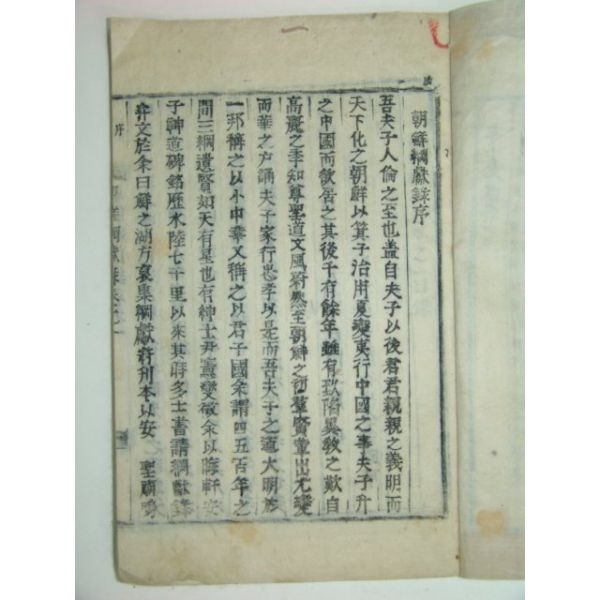 朝鮮綱獻錄序
吾夫子人倫之至也盖自夫子以後君君親親之義明而
天下化之朝鮮以箕子治用夏變夷行中國之事夫子升
之中國而欲居之其後千有餘年雖有致陷異敎之歎自
高麗之季知尊聖道文風蔚然至朝鮮之初羣賢輩出尤變
而華之戶誦夫子家行忠孝以是而吾夫子之道大明於
一邦稱之以小中華又稱之以君子國余謂四五百年之
間三綱遺賢如天有星也有紳士尹憲燮徵余以晦軒安
子神道碑銘歷水陸七千里以來其時多士書請綱獻錄
弁文於余曰鮮之湖方裒集綱獻將刊本以安聖廟
序